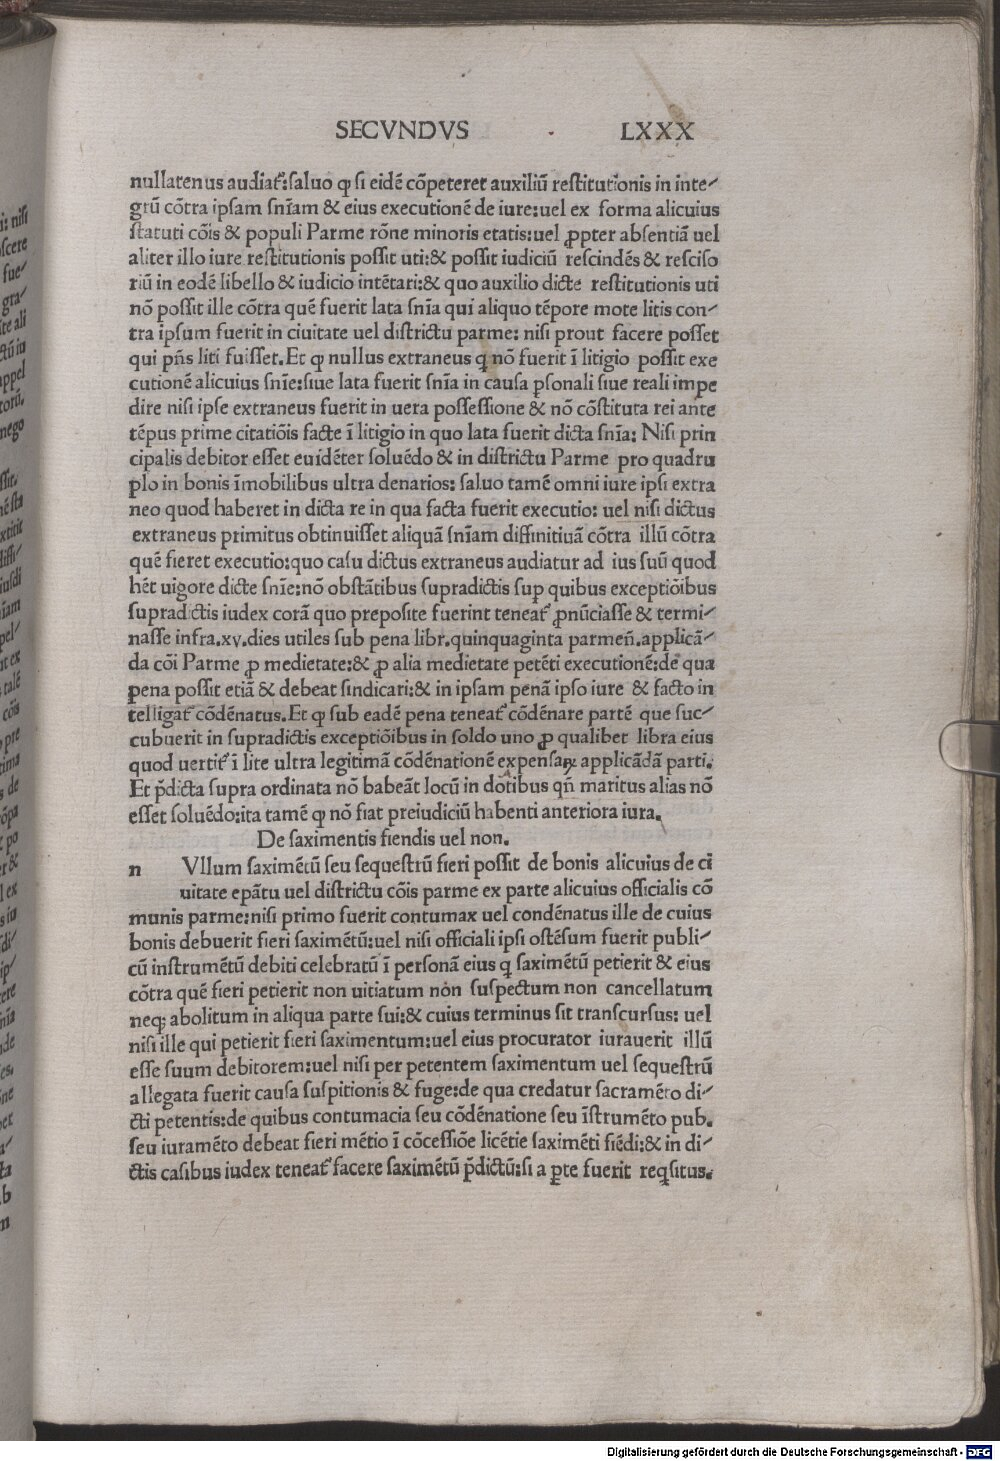 SECVNDVS LXXX
nullatenus audiat᷑:ſaluo ꝙ ſi eidē cōpeteret auxiliū reſtitutionis in inte-
grū cōtra ipſam ſnīam & eius executionē de iure:uel ex forma alicuius
ſtatuti cōis & populi Parme rōne minoris etatis:uel ꝓpter abſentiā uel
aliter illo iure reſtitutionis poſſit uti:& poſſit iudiciū reſcindēs & reſciſo
riū in eodē libello & iudicio intētari:& quo auxilio dicte reſtitutionis uti
nō poſſit ille cōtra quē fuerit lata ſnīa qui aliquo tēpore mote litis con-
tra ipſum fuerit in ciuitate uel diſtrictu parme: niſi prout facere poſſet
qui pn̄s liti fuiſſet.Et ꝙ nullus extraneus q nō fuerit ī litigio poſſit exe
cutionē alicuius ſnīe:ſiue lata fuerit ſnīa in cauſa ꝑſonali ſiue reali impe
dire niſi ipſe extraneus fuerit in uera poſſeſſione & nō cōſtituta rei ante
tēpus prime citatiōis facte ī litigio in quo lata fuerit dicta ſnīa: Niſi prin
cipalis debitor eſſet euidēter ſoluēdo & in diſtrictu Parme pro quadru
plo in bonis īmobilibus ultra denarios: ſaluo tamē omni iure ipſi extra
neo quod haberet in dicta re in qua facta fuerit executio: uel niſi dictus
extraneus primitus obtinuiſſet aliquā ſnīam diffinitiuā cōtra illū cōtra
quē fieret executio:quo caſu dictus extraneus audiatur ad ius ſuū quod
hēt uigore dicte ſnīe:nō obſtātibus ſupradictis ſuꝑ quibus exceptiōibus
ſupradictis iudex corā quo prepoſite fuerint teneat᷑ ꝓnūciaſſe & termi-
naſſe infra.xv.dies utiles ſub pena libr.quinquaginta parmen̄.applicā-
da cōi Parme ꝓ medietate:& ꝓ alia medietate petēti executionē:de qua
pena poſſit etiā & debeat ſindicari:& in ipſam penā ipſo iure & facto in
telligat᷑ cōdēnatus.Et ꝙ ſub eadē pena teneat᷑ cōdēnare partē que ſuc-
cubuerit in ſupradictis exceptiōibus in ſoldo uno ꝓ qualibet libra eius
quod uertit᷑ ī lite ultra legitimā cōdēnationē expenſaꝝ applicādā parti.
Et p̄dicta ſupra ordinata nō habeāt locū in dotibus qn̄ maritus alias nō
eſſet ſoluēdo:ita tamē ꝙ nō fiat preiudiciū habenti anteriora iura.
De ſaximentis fiendis uel non.
n Vllum ſaximētū ſeu ſequeſtrū fieri poſſit de bonis alicuius de ci
uitate epātu uel diſtrictu cōis parme ex parte alicuius officialis cō
munis parme:niſi primo fuerit contumax uel condēnatus ille de cuius
bonis debuerit fieri ſaximētū:uel niſi officiali ipſi oſtēſum fuerit publi-
cū inſtrumētū debiti celebratū ī perſonā eius q ſaximētū petierit & eius
cōtra quē fieri petierit non uitiatum non ſuſpectum non cancellatum
neq; abolitum in aliqua parte ſui:& cuius terminus ſit tranſcurſus: uel
niſi ille qui petierit fieri ſaximentum:uel eius procurator iurauerit illū
eſſe ſuum debitorem:uel niſi per petentem ſaximentum uel ſequeſtrū
allegata fuerit cauſa ſuſpitionis & fuge:de qua credatur ſacramēto di-
cti petentis:de quibus contumacia ſeu cōdēnatione ſeu īſtrumēto pub.
ſeu iuramēto debeat fieri mētio ī cōceſſiōe licētie ſaximēti fiēdi:& in di-
ctis caſibus iudex teneat᷑ facere ſaximētū p̄dictū:ſi a ꝑte fuerit reqſitus.
Digitalisierung gefördert durch die Deutsche Forschungsgemeinschaft - DFG